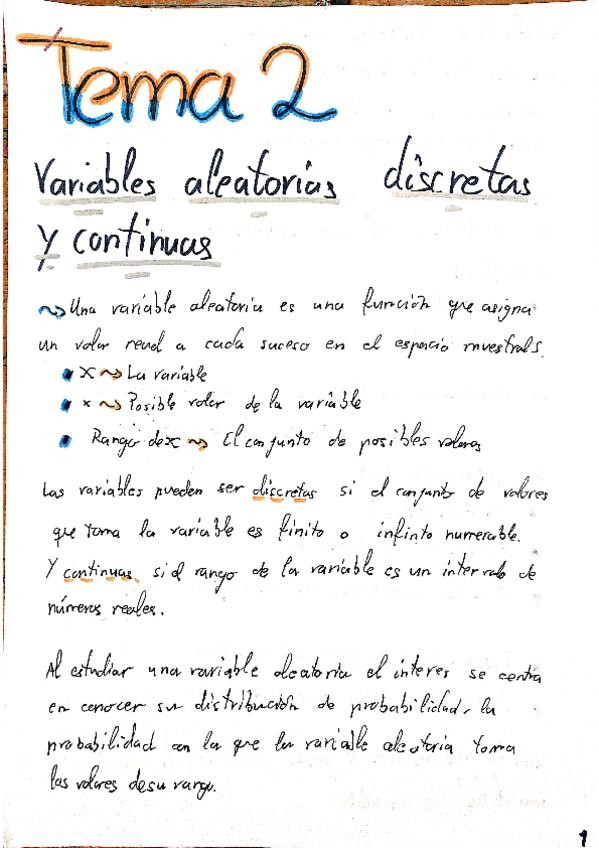 Tema 2
Variables aleatorias discretas
y continuas
Una variable aleatoria es una función que asigna
un valor real a cada suceso en el espacio muestral.
X La variable
x Posible valor de la variable
Rango de x El conjunto de posibles valores
Las variables pueden ser discretas si el conjunto de valores
que toma la variable es finito o infinto numerable.
Y continuas, si el rango de la variable es un intervalo de
números reales.
Al estudiar una variable aleatoria el interes se centra
en conocer su distribución de probabilidad, la
probabilidad con la que la variable aleatoria toma
los valores de su rango.
1